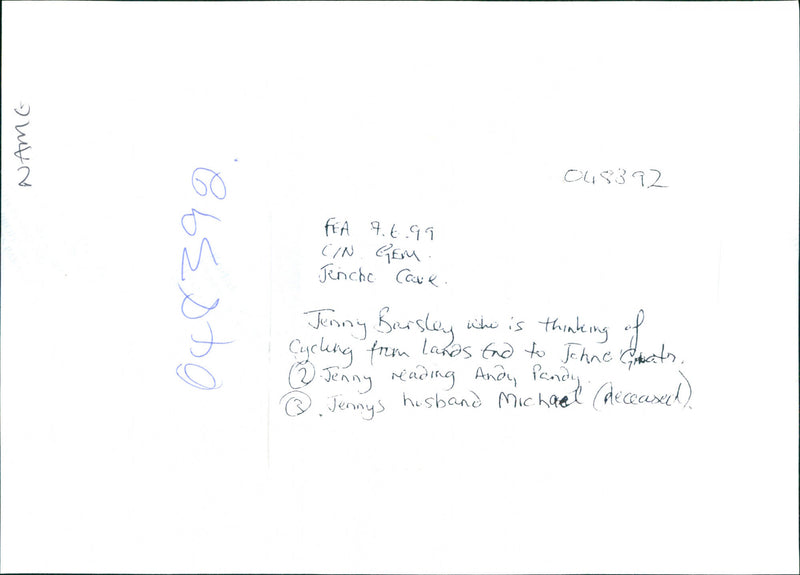 NAME
048392.
048392
FEA 9.6.99
C/N. GEM.
Jericho Cave.
Jenny Barsley who is thinking of
Cycling from Lands End to Johno
② Jenny reading Andy Pandy.
③ . Jennys husband Michael (deceased).